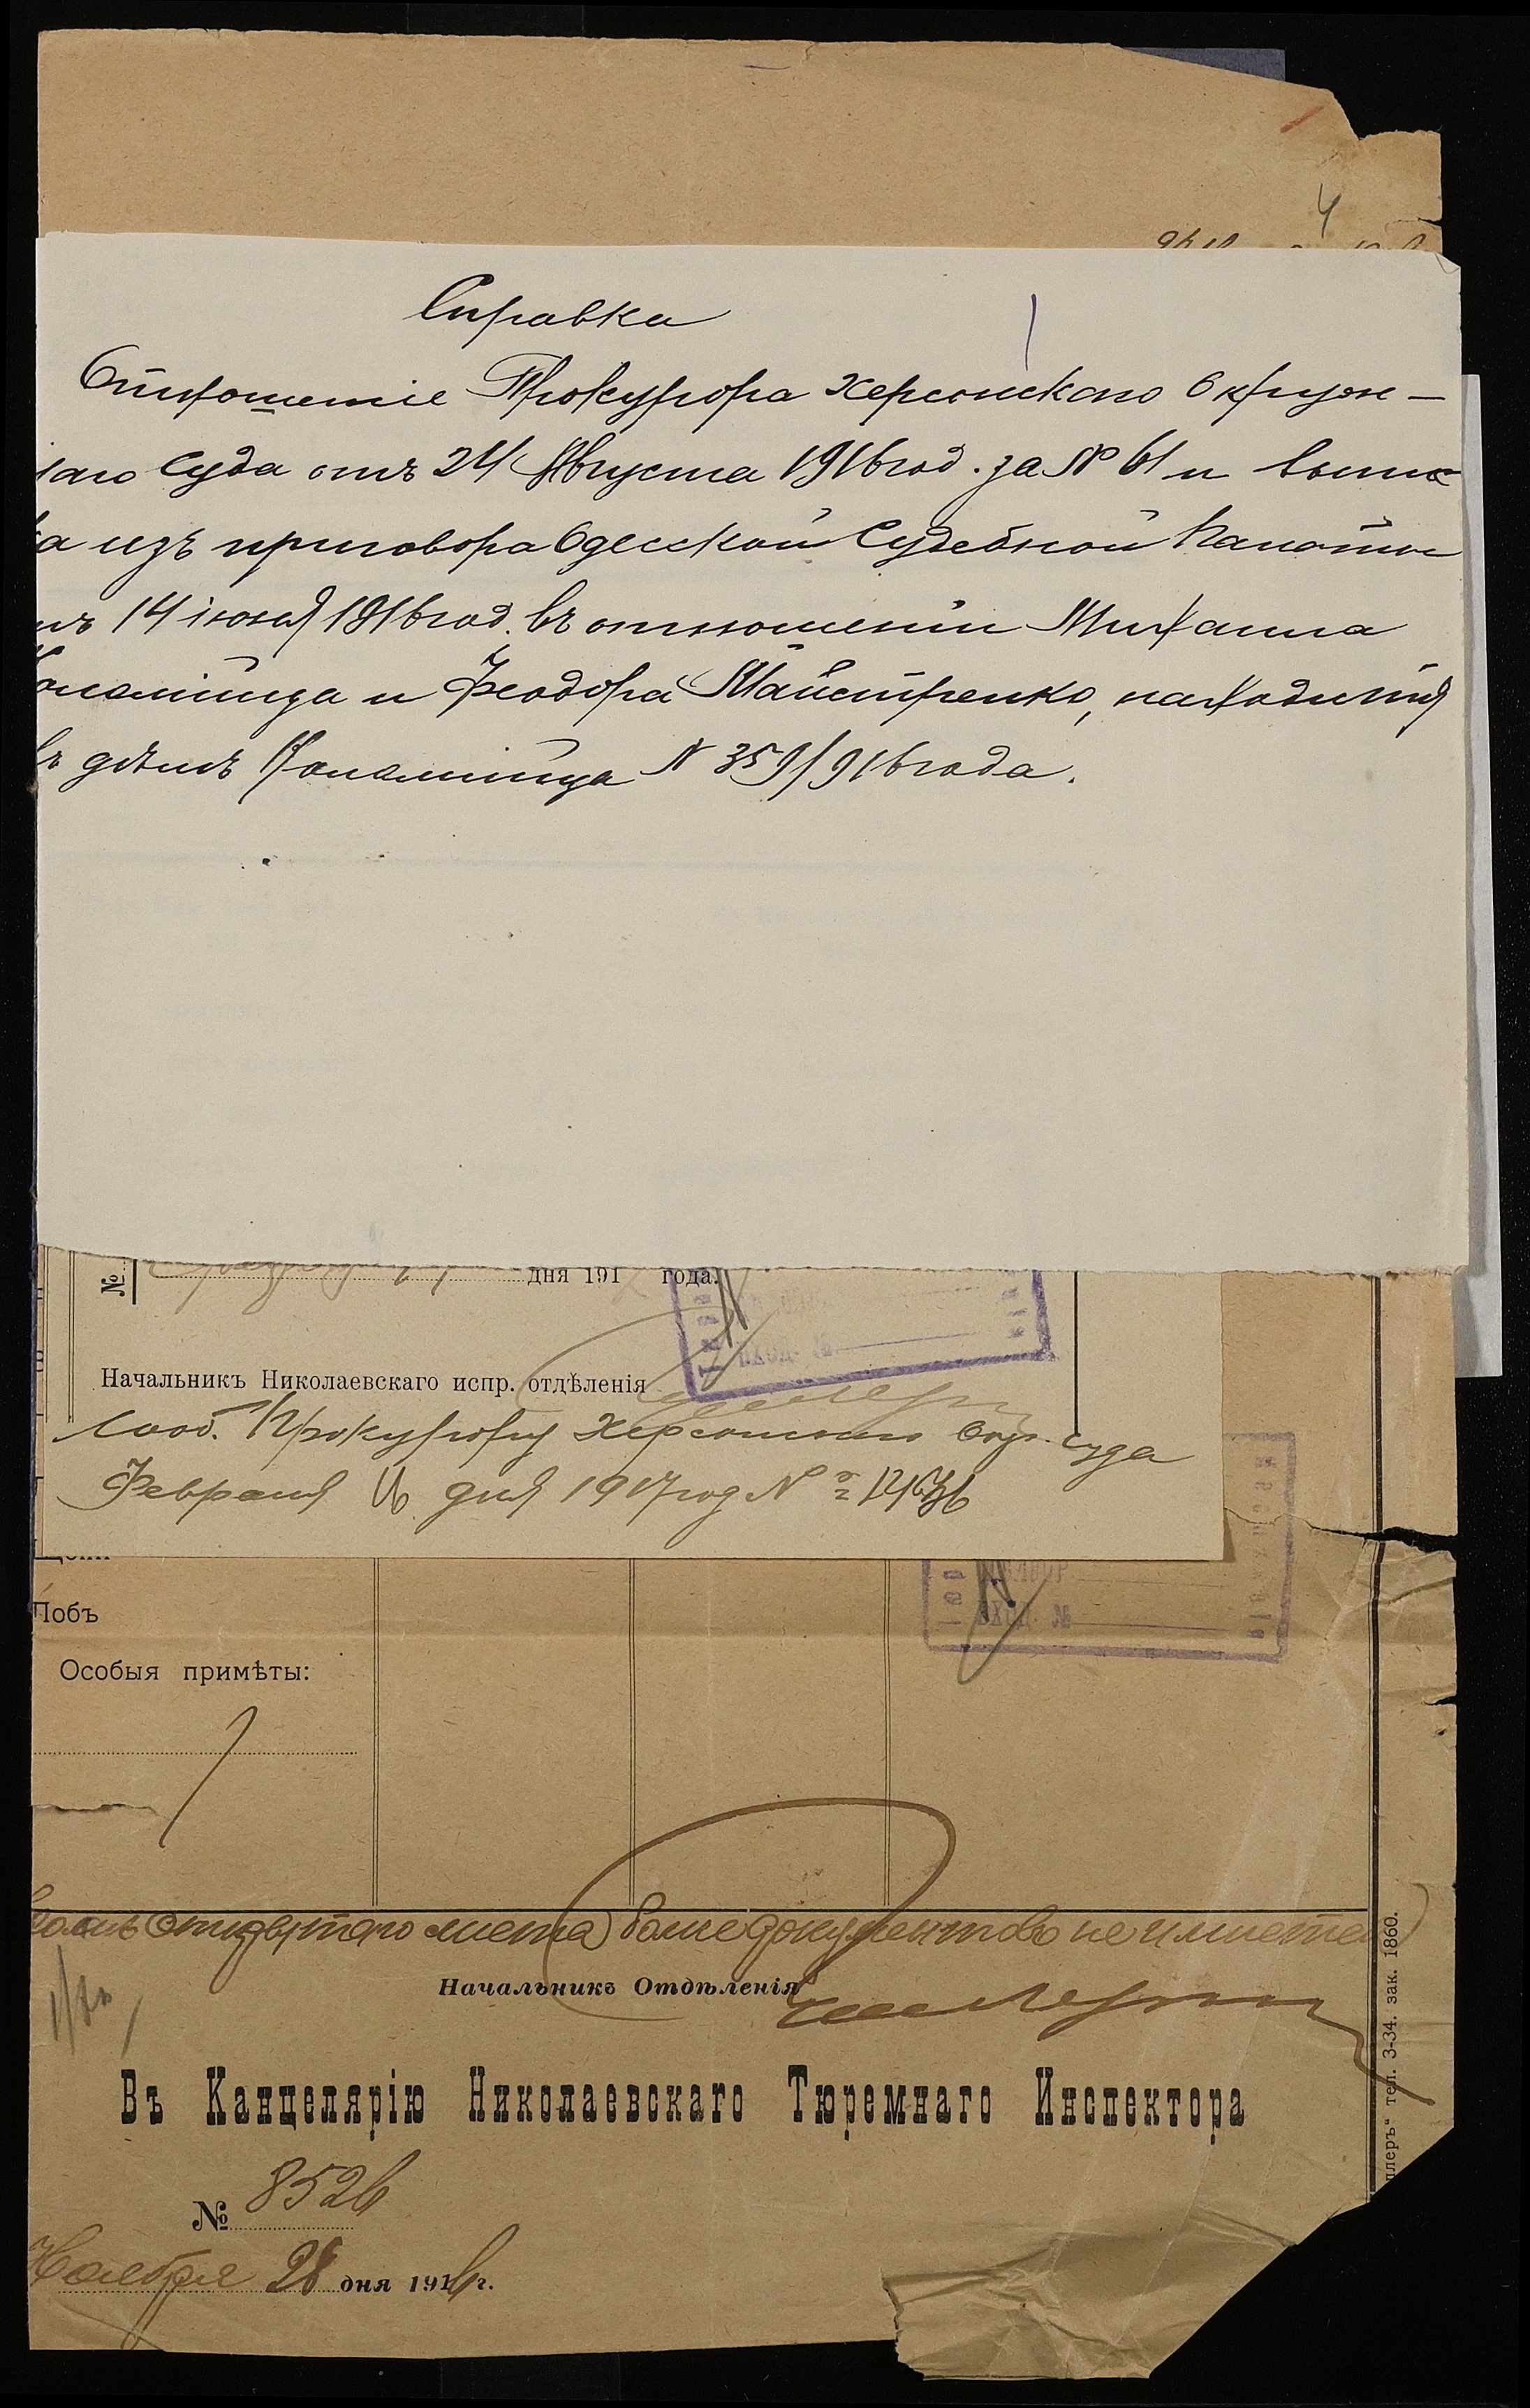 4
Справка
Отношеніе Прокурора Херсонскаго Окруж-
наго Суда отъ 24 Августа 1916 год. за № 61 и выпис
ка изъ приговора Одесской Судебной Палаты
отъ 14 іюня 1916 год. въ отношеніи Михаила
и Феодора Майстренко, находится
въ дѣлѣ № 359/916 года.
№
дня 191 года.
ВХОД. №
Начальникъ Николаевскаго испр. отдѣленія
Сооб. Прокурору Херсонскаго Окр. Суда
Февраля 16 дня 1917 год №
ВХОД. №
Лобъ
Особыя примѣты:
листа) болѣе документовъ не имѣется
Начальникъ Отдѣленія
Въ Канцелярію Николаевскаго Тюремнаго Инспектора
№ 8526
Ноября 28 дня 1916 г.
плеръ“ тел. 3-34. зак. 1860.